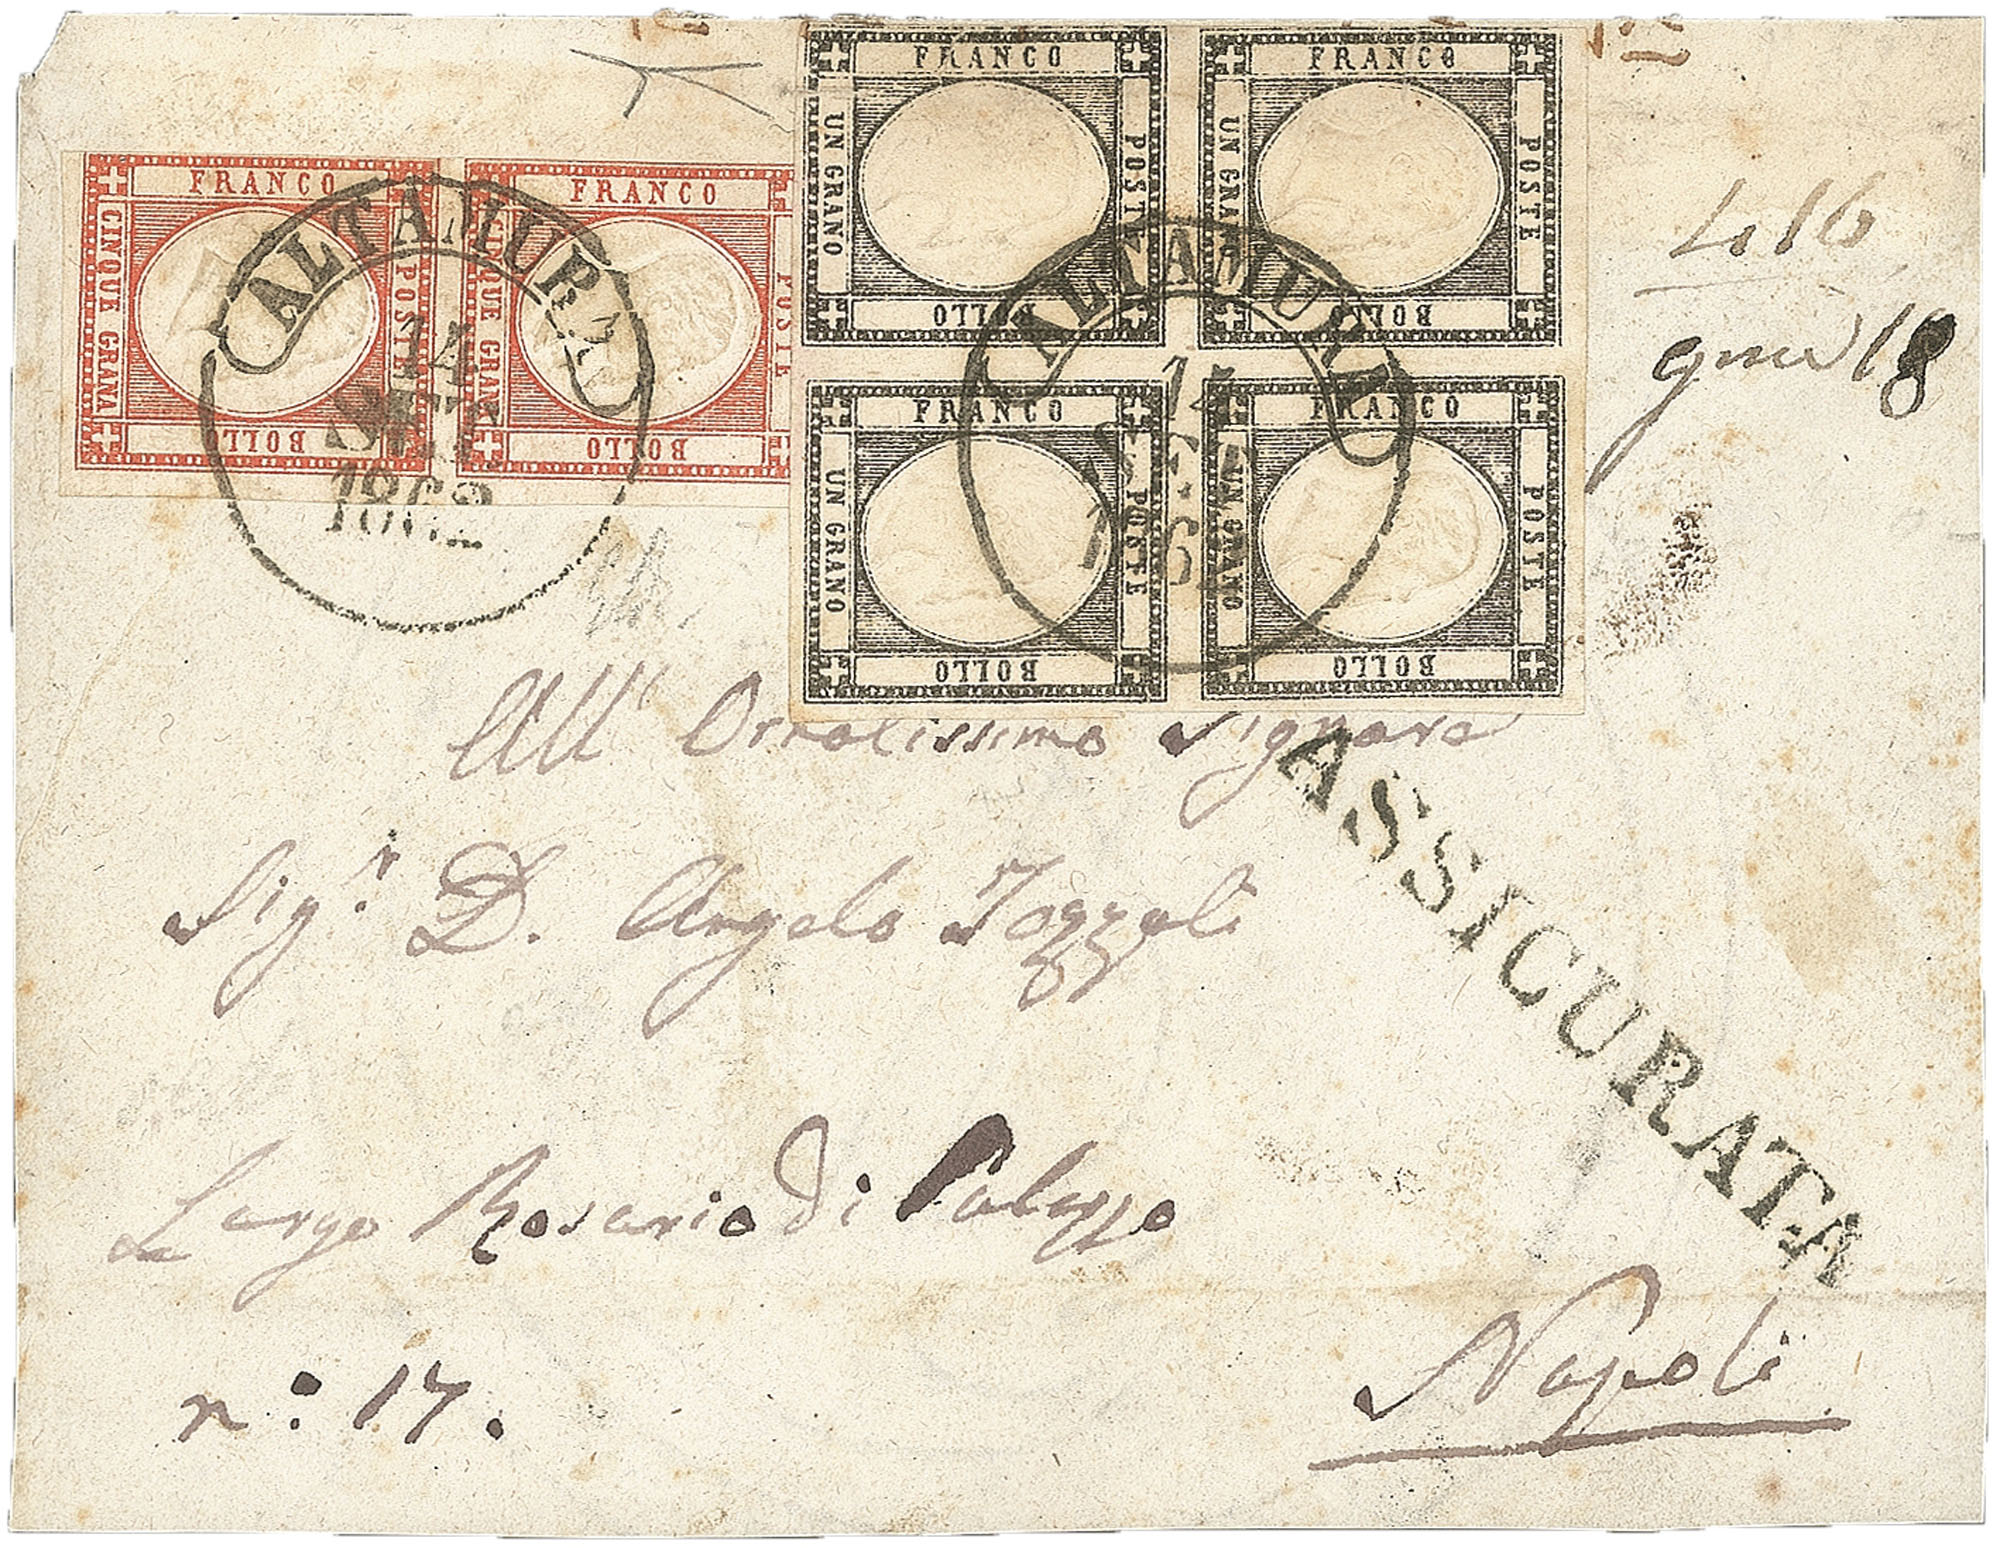 FRANCO POSTE BOLLO CINQUE GRANA
FRANCO POSTE BOLLO CINQUE GRANA
FRANCO POSTE BOLLO UN GRANO
FRANCO POSTE BOLLO UN GRANO
FRANCO POSTE BOLLO UN GRANO
FRANCO POSTE BOLLO UN GRANO
ALTAMURA
14
SET
1862
ALTAMURA
14
SET
186
416
18
All' Ornatissimo Signore
ASSICURATA
Sig.r D. Angelo Tozzoli
Largo Rosario di Palazzo
n: 17.
Napoli